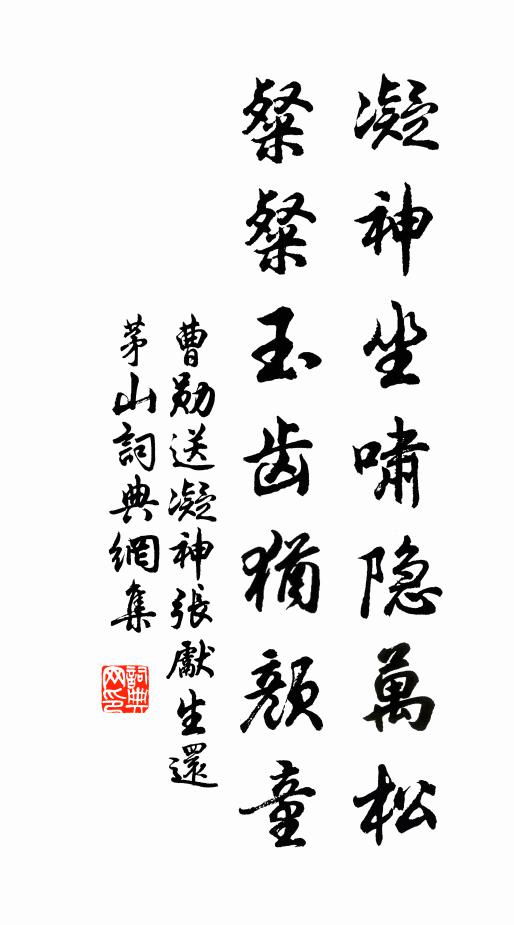 凝神坐啸隐萬松
粲粲玉齿猶顏童
曹勋送凝神張獻生還
茅山詞典網集
詞典网印